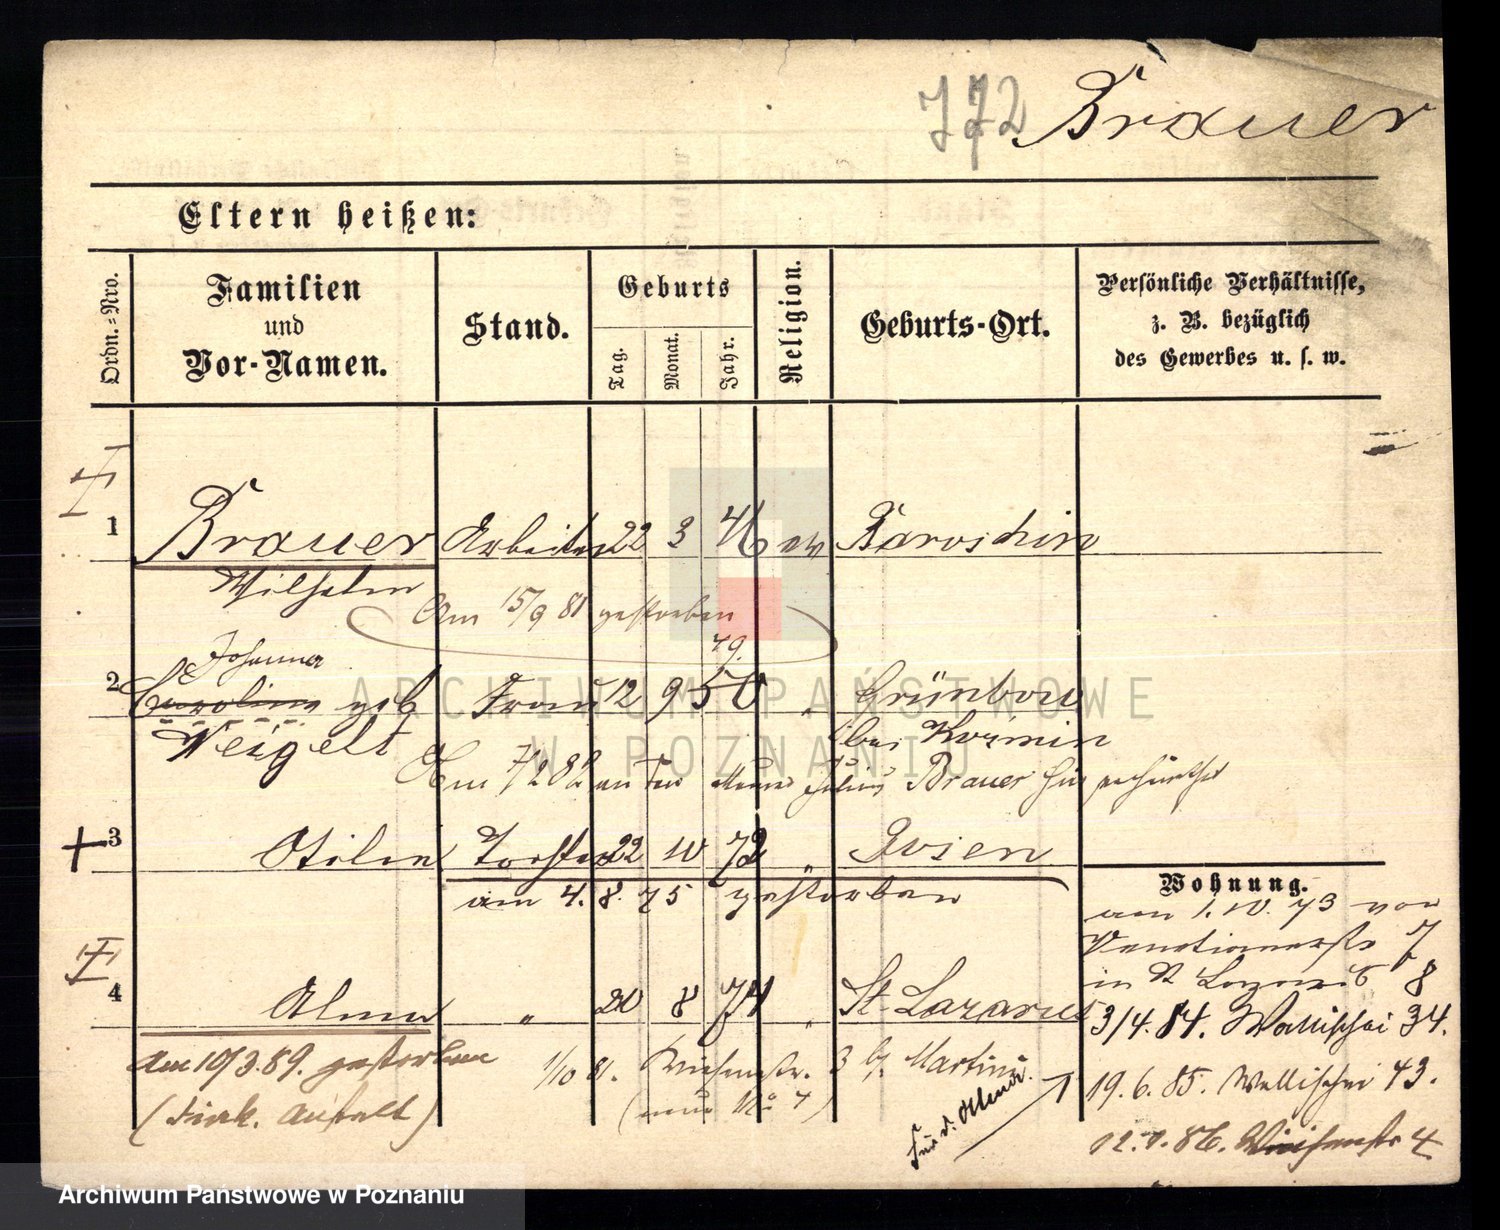 772 Brauer
Eltern heißen:
Ordn.=Nro.
Familien
und
Vor-Namen.
Stand.
Geburts
Tag.
Monat.
Jahr.
Religion.
Geburts-Ort.
Persönliche Verhältnisse,
z. B. bezüglich
des Gewerbes u. s. w.
1 Brauer Arbeiter 22 3 46 ev
Wilhelm
Am 15/9 81 gestorben
Johanna 49.
2 Caroline geb Frau 12 9 50 "
Weigelt
Am 7/2 82 Julius Brauer
3 Otilie Tochter 22 10 72 " Posen
am 4. 8. 75 gestorben
Wohnung.
am 1. 10. 73 von
7
in St Lazarus 8
4 Alma " 20 8 74 " St. Lazarus
3/4. 84. Wallischei 34.
Am 10/3.89. gestorben
1/10 81. Wiesenstr. 3 b/ Martini
(neue No 7)
für d. Alma.
19. 6. 85. Wallischei 43.
86. Wiesenstr 4
ARCHIWUM PAŃSTWOWE
W POZNANIU
Archiwum Państwowe w Poznaniu